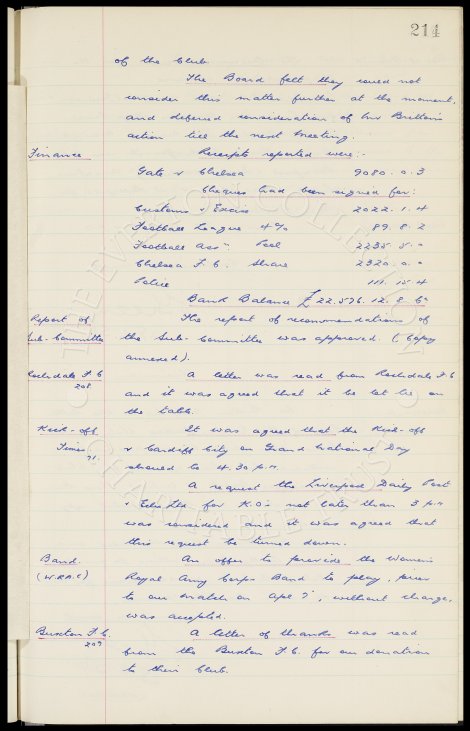 214
of the Club.
The Board felt they could not
consider this matter further at the moment,
and deferred consideration of Mr Britton's
action till the next meeting.
Finance Receipts reported were:-
Gate v Chelsea 9080. 0. 3
Cheques had been signed for:
Customs & Excise 2022. 1. 4
Football League 4% 89. 8. 2
Football Assn. Pool 2235. 5. 0
Chelsea F.C. Share 2320. 0. 0
Police 111. 15. 4
Bank Balance £22,576. 12. 8. Cr
Report of The report of recommendations of
Sub-Committee the Sub-Committee was approved. (Copy
annexed).
Rochdale F.C. A letter was read from Rochdale F.C
208 and it was agreed that it be let lie on
the table.
Kick-off It was agreed that the Kick-off
Times v Cardiff City on Grand National Day
71. should be 4.30 p.m.
A request the Liverpool Daily Post
& Echo Ltd. for K.O's not later than 3 p.m
was considered and it was agreed that
this request be turned down.
Band. An offer to provide the Women's
(W.R.A.C) Royal Army Corps Band to play, prior
to our match on Apl 7, without charge,
was accepted.
Buxton F.C. A letter of thanks was read
207 from the Buxton F.C. for our donation
to their Club.
THE EVERTON COLLECTION
CHARITABLE TRUST